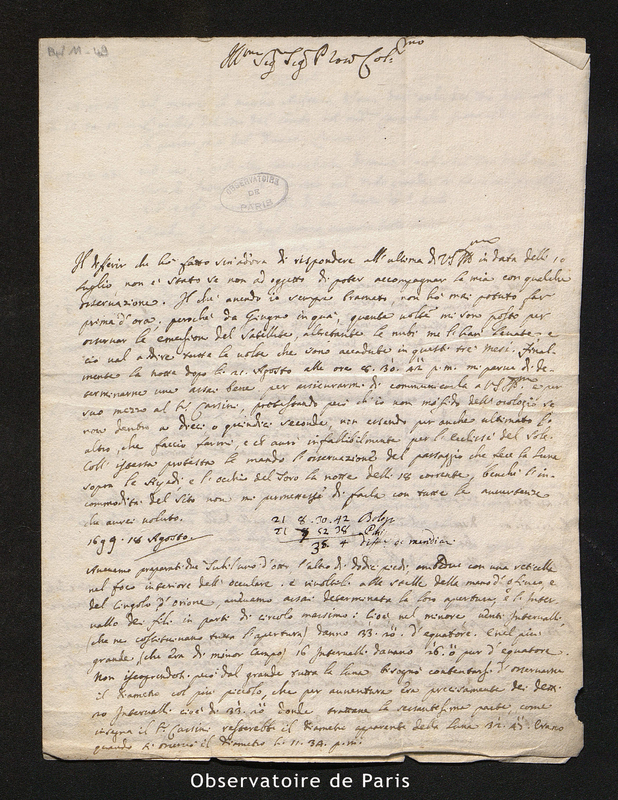 Ill.mo Sig.r Sig.r P.ron Col.mo
OBSERVATOIRE
DE
PARIS
Il differir che hò fatto sin'adora di rispondere all'ultima di V.S. Ill.ma in data delli 10
luglio non è stato se non ad oggetto di poter accompagnar la mia con qualche
osservazione. Il che avendo io sempre bramato, non hò mai potuto far
prima d'ora, perochè da Giugno in quà, quante volte mi sono posto per
osservar le emersioni del Satellite, altretante le nubi me l'han levate, e
ciò val a dire tutte le volte che sono accadute in questi tre mesi. Final-
mente la notte dopo li 21 Agosto alle ore 8. 30. 42 p. m. mi parve di de-
terminarne una assai bene, per assicurarmi di communicarla a V.S. Ill.ma e per
suo mezzo al Sr Cassini, protestando però ch'io non mi fido dell'orologio se
non dentro a dieci o quindici secondi, non essendo per anche ultimato l'
altro, che faccio fare, e ch'avrò infallibilmente per l'Ecclisse del Sole.
Coll' istessa protesta le mando l'osservazione del passaggio che fece la Luna
sopra le Hyadi e l'occhio del Toro la notte delli 18 corrente, benchè l'in-
commodità del sito non mi permettesse di farla con tutte le avvertenze
che avrei voluto.
21 8. 30. 42 Bolog.
21 52 38 Par
38 4 diff. de meridian
1699. 18 Agosto
Avevamo preparati due Tubi, uno d'otto l'altro di dodici piedi, amendue con una reticella
nel foco interiore dell'oculare, e rivoltili alle stelle della mano d'
del Cingolo d'Orione, avevamo assai determinata la loro apertura, e l'inter-
vallo de fili in parti di circolo massimo: cioè nel minore venti Intervalli
(che ne costituivano tutta l'apertura) danno 33'. d'equatore. E nel più
grande (che era di minor Campo) 16 Intervalli davano 26'. 0" pur d'equatore.
Non però dal grande tutta la luna bisognò contentarsi d'osservarne
il diametro col più piccolo, che per avventura era precisamente dei detti
20 Intervalli cioè di 33'. donde trattane la sessantesima parte, come
insegna il Sr Cassini, resterebbe il diametro apparente della luna 32'. Erano
quando s'osservò il diametro h. 11. 34. p. m.
Observatoire de Paris